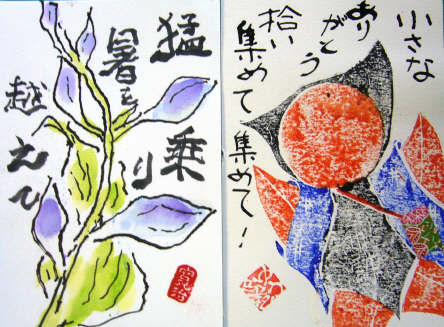 猛
暑を
乗り
越えて
小さな
ありがとう
拾い
集めて集めて!